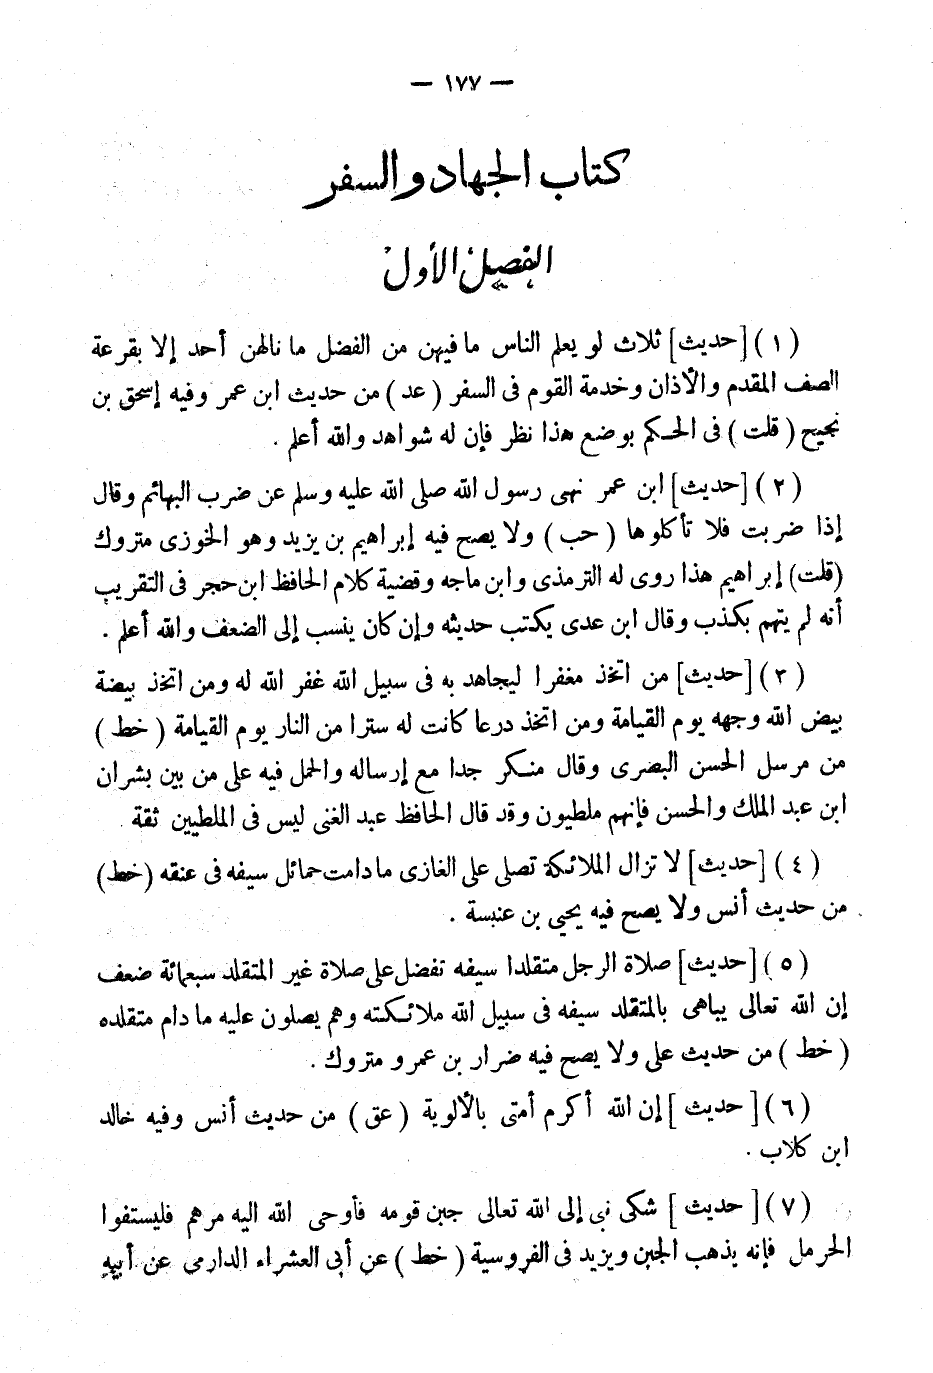 — ١٧٧ —
كتاب الجهاد والسفر
الفصل الأول
(١) [حديث] ثلاث لو يعلم الناس ما فيهن من الفضل ما نالهن أحد إلا بقرعة
الصف المقدم والأذان وخدمة القوم فى السفر (عد) من حديث ابن عمر وفيه إسحق بن
نجيح (قلت) فى الحكم بوضع هذا نظر فإن له شواهد والله أعلم .
(٢) [حديث] ابن عمر نهى رسول الله صلى الله عليه وسلم عن ضرب البهائم وقال
إذا ضربت فلا تأكلوها (حب) ولا يصح فيه إبراهيم بن يزيد وهو الخوزى متروك
(قلت) إبراهيم هذا روى له الترمذى وابن ماجه وقضية كلام الحافظ ابن حجر فى التقريب
أنه لم يتهم بكذب وقال ابن عدى يكتب حديثه وإن كان ينسب إلى الضعف والله أعلم .
(٣) [حديث] من اتخذ مغفرا ليجاهد به فى سبيل الله غفر الله له ومن اتخذ بيضة
بيض الله وجهه يوم القيامة ومن اتخذ درعا كانت له سترا من النار يوم القيامة (خط)
من مرسل الحسن البصرى وقال منكر جدا مع إرساله والحمل فيه على من بين بشران
ابن عبد الملك والحسن فإنهم ملطيون وقد قال الحافظ عبد الغنى ليس فى الملطيين ثقة .
(٤) [حديث] لا تزال الملائكة تصلى على الغازى ما دامت حمائل سيفه فى عنقه (خط)
من حديث أنس ولا يصح فيه يحيى بن عنبسة .
(٥) [حديث] صلاة الرجل متقلدا سيفه تفضل على صلاة غير المتقلد سبعمائة ضعف
إن الله تعالى يباهى بالمتقلد سيفه فى سبيل الله ملائكته وهم يصلون عليه ما دام متقلده
(خط) من حديث على ولا يصح فيه ضرار بن عمرو متروك .
(٦) [حديث] إن الله أكرم أمتى بالألوية (عق) من حديث أنس وفيه خالد
ابن كلاب .
(٧) [حديث] شكى نبى إلى الله تعالى جبن قومه فأوحى الله اليه مرهم فليستفوا
الحرمل فإنه يذهب الجبن ويزيد فى الفروسية (خط) عن أبى العشراء الدارمى عن أبيه